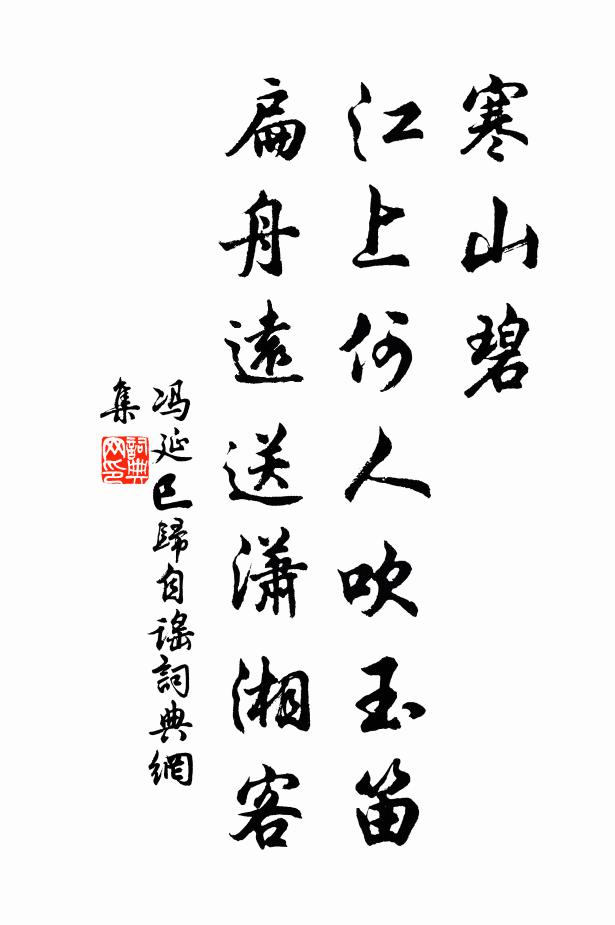 寒山碧
江上何人吹玉笛
扁舟遠送瀟湘客
冯延巳歸自謠詞典網
集
詞典網印